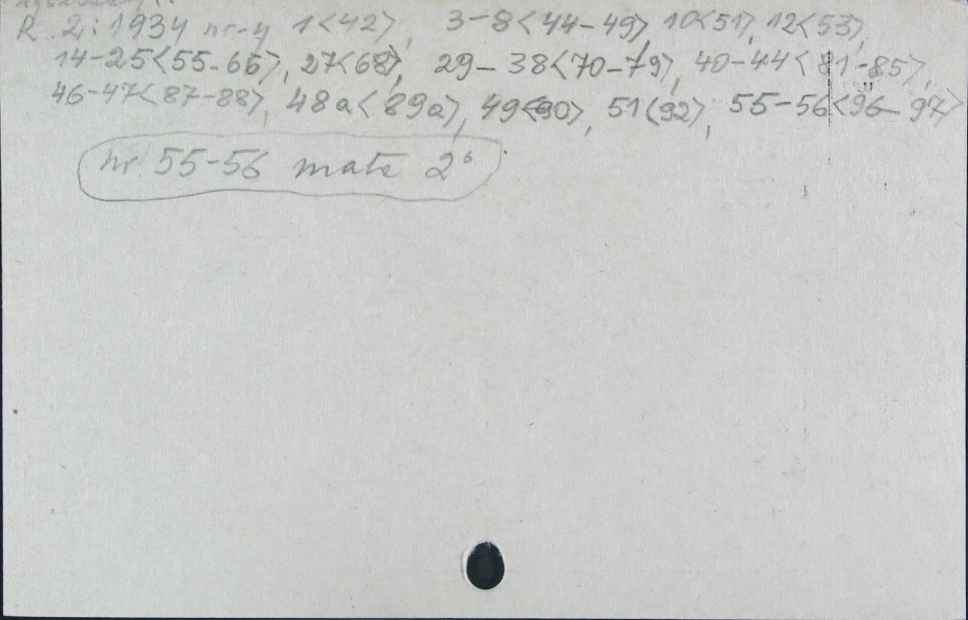 R. 2: 1934 nr-y 1<42>, 3-8<44-49>, 10<51>, 12<53>,
14-25<55-66>, 27<68>, 29-38<70-79>, 40-44<81-85>,
46-47<87-88>, 48a<89a>, 49<90>, 51(92), 55-56<96-97>
nr 55-56 mate 2°